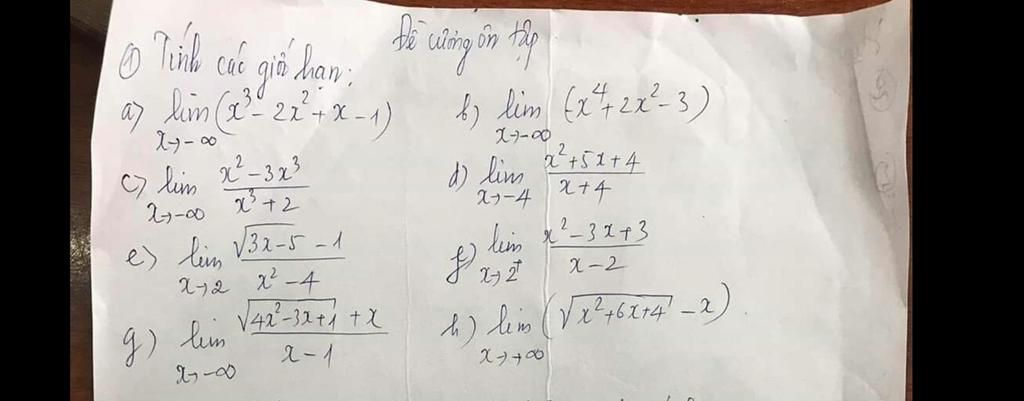 Đề cương ôn tập
① Tính các giới hạn:
a) lim x→-∞ (x³ - 2x² + x - 1) b) lim x→-∞ (x⁴ + 2x² - 3)
c) lim x→-∞ (x² - 3x³)/(x³ + 2) d) lim x→-4 (x² + 5x + 4)/(x + 4)
e) lim x→2 (√(3x-5) - 1)/(x² - 4) f) lim x→2⁺ (x² - 3x + 3)/(x - 2)
g) lim x→-∞ (√(4x² - 3x + 1) + x)/(x - 1) h) lim x→+∞ (√(x² + 6x + 4) - x)